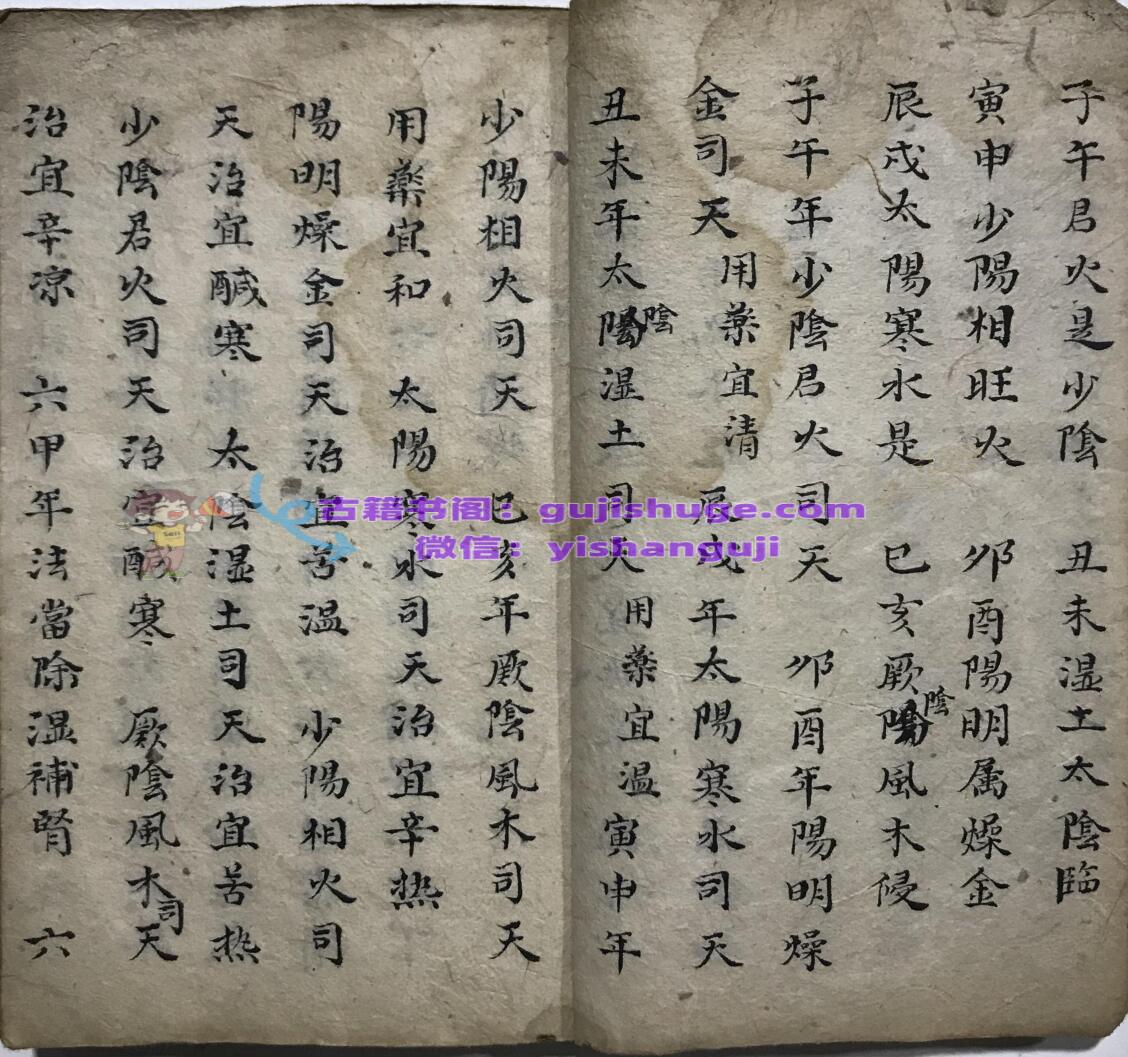 子午君火是少陰 丑未湿土太陰臨
寅申少陽相旺火 卯酉陽明属燥金
辰戌太陽寒水是 巳亥厥陰風木侵
子午年少陰君火司天 卯酉年陽明燥
金司天 用藥宜清 辰戌年太陽寒水司天
丑未年太陰湿土司天 用藥宜温 寅申年
少陽相火司天 巳亥年厥陰風木司天
用藥宜和 太陽寒水司天治宜辛热
陽明燥金司天治宜苦温 少陽相火司
天治宜鹹寒 太陰湿土司天治宜苦热
少陰君火司天治宜鹹寒 厥陰風木司天
治宜辛凉 六甲年法當除湿補腎 六
古籍书阁：gujishuge.com
微信：yishanguji